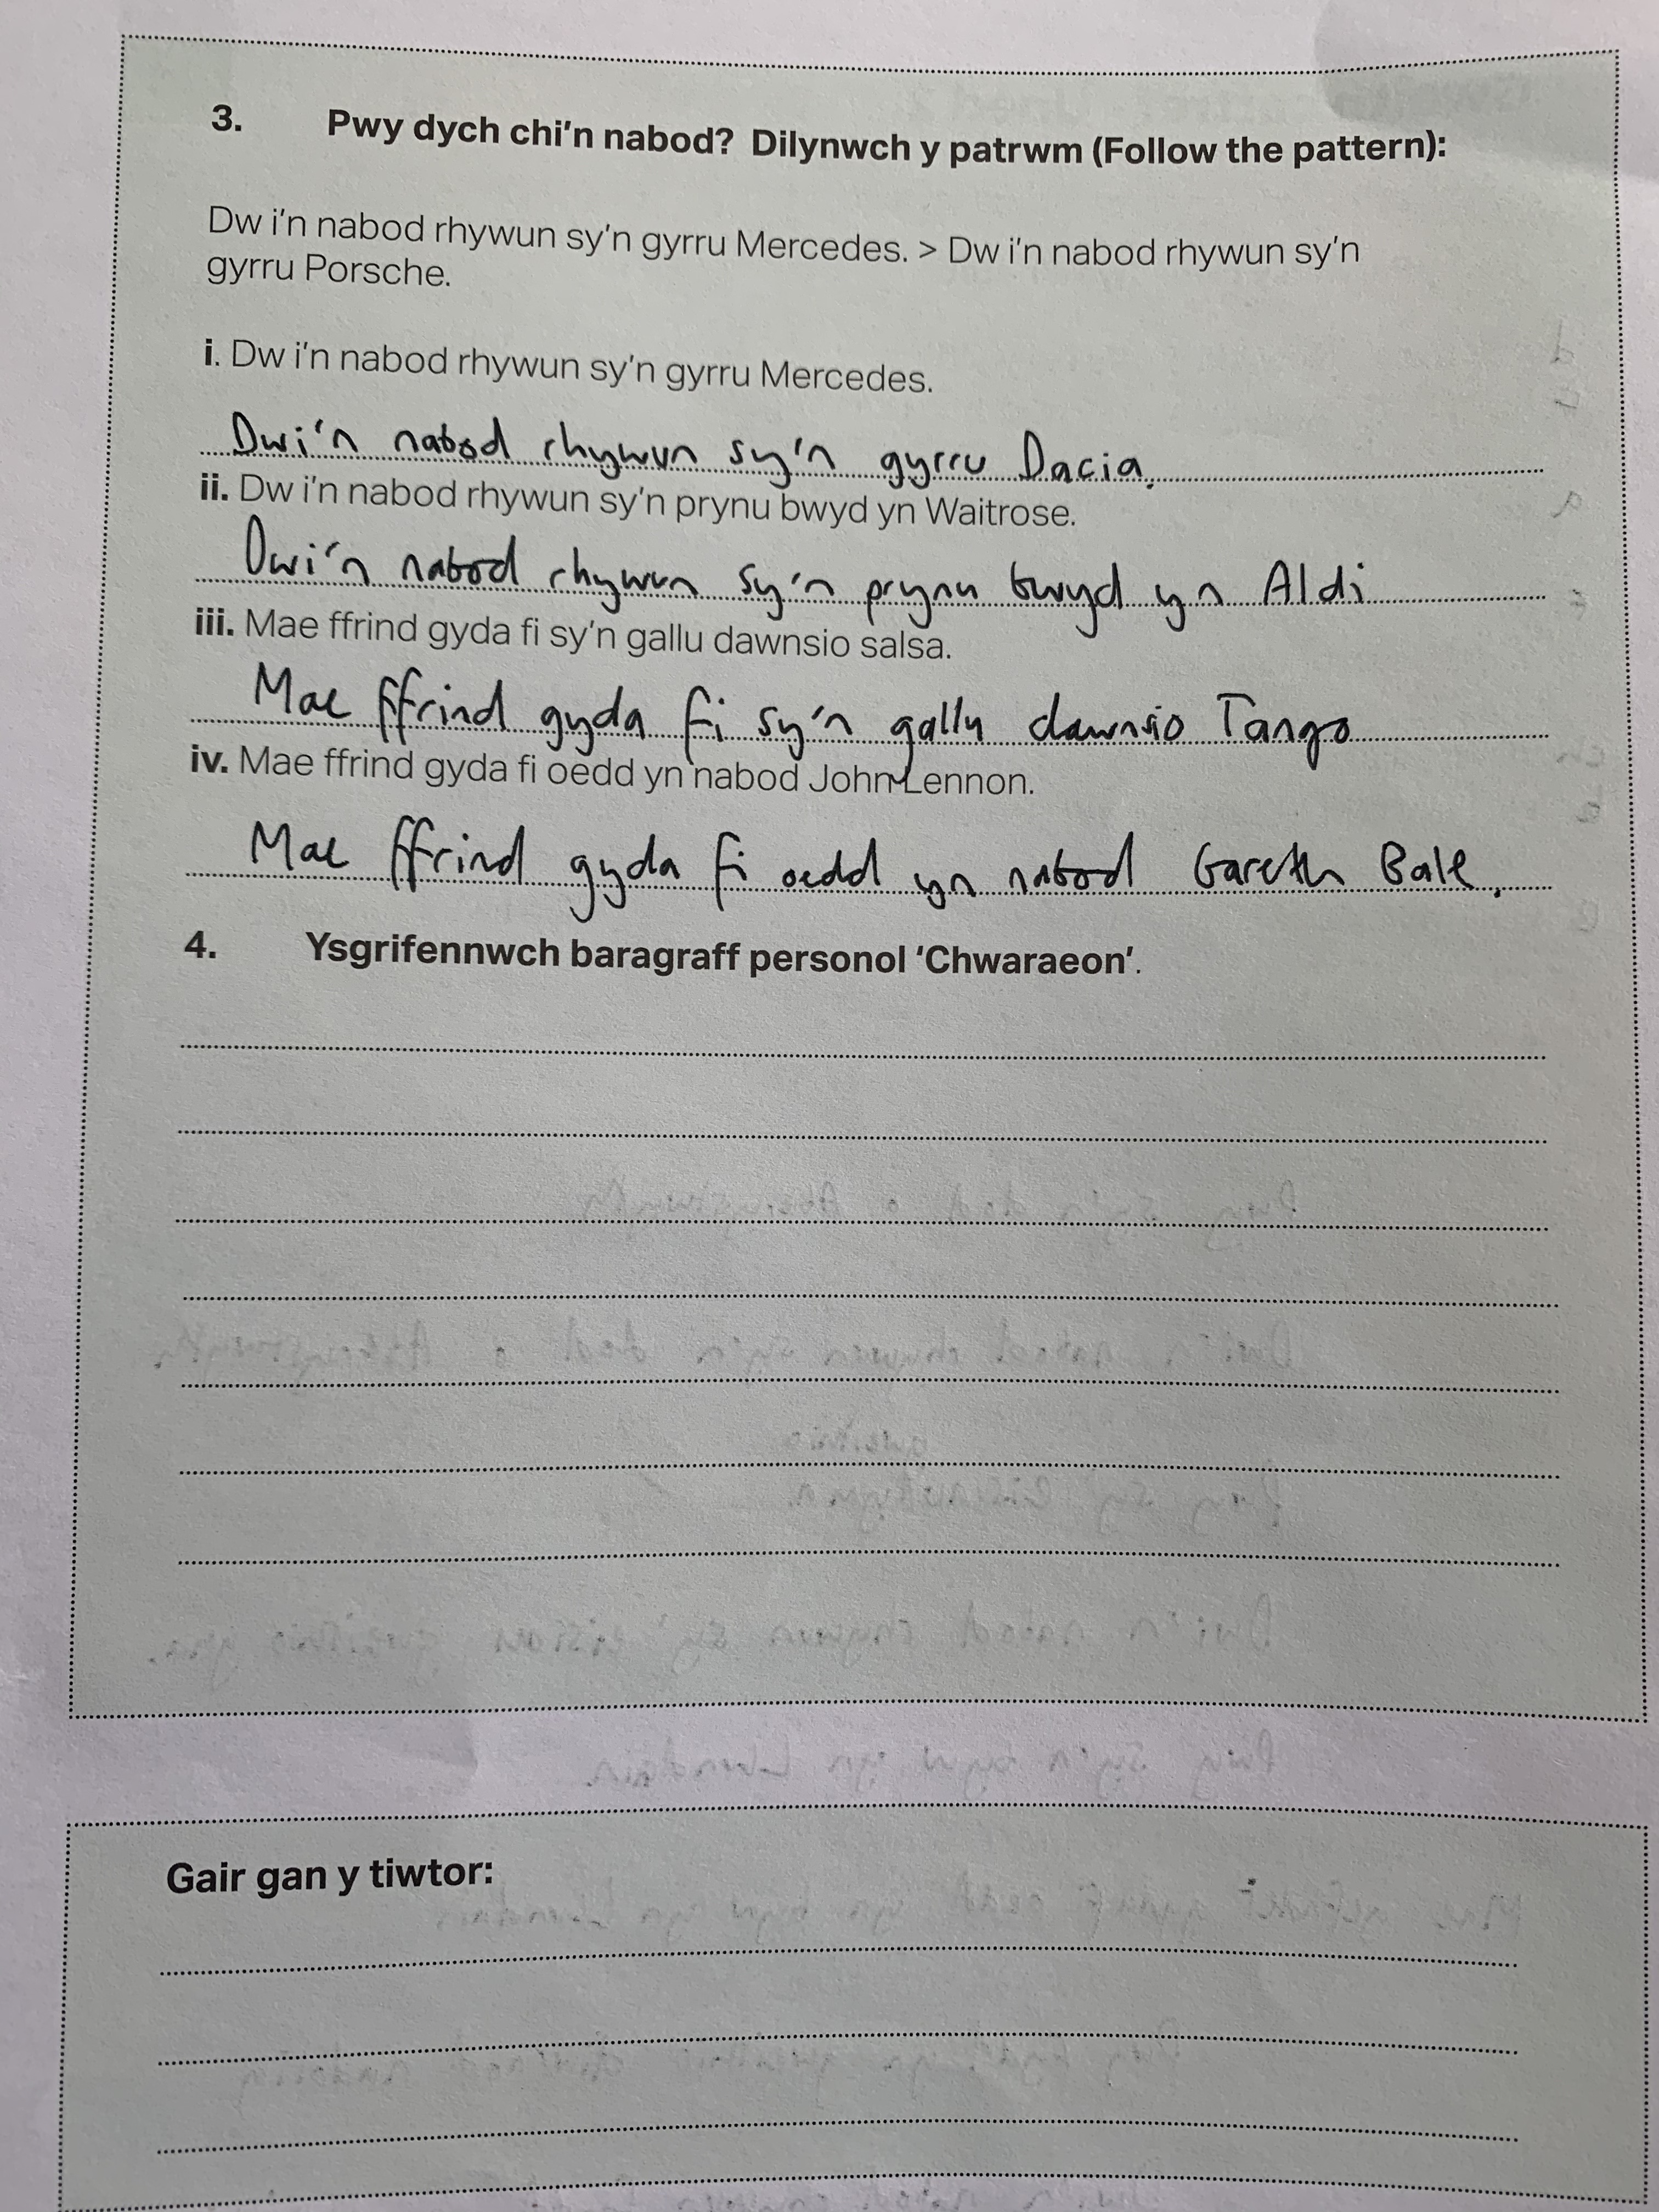 3. Pwy dych chi'n nabod? Dilynwch y patrwm (Follow the pattern):
Dw i'n nabod rhywun sy'n gyrru Mercedes. > Dw i'n nabod rhywun sy'n
gyrru Porsche.
i. Dw i'n nabod rhywun sy'n gyrru Mercedes.
Dwi'n nabod rhywun sy'n gyrru Dacia.
ii. Dw i'n nabod rhywun sy'n prynu bwyd yn Waitrose.
Dwi'n nabod rhywun sy'n prynu bwyd yn Aldi
iii. Mae ffrind gyda fi sy'n gallu dawnsio salsa.
Mae ffrind gyda fi sy'n gally dawnsio Tango
iv. Mae ffrind gyda fi oedd yn nabod John Lennon.
Mae ffrind gyda fi oedd yn nabod Gareth Bale.
4. Ysgrifennwch baragraff personol 'Chwaraeon'.
Gair gan y tiwtor: